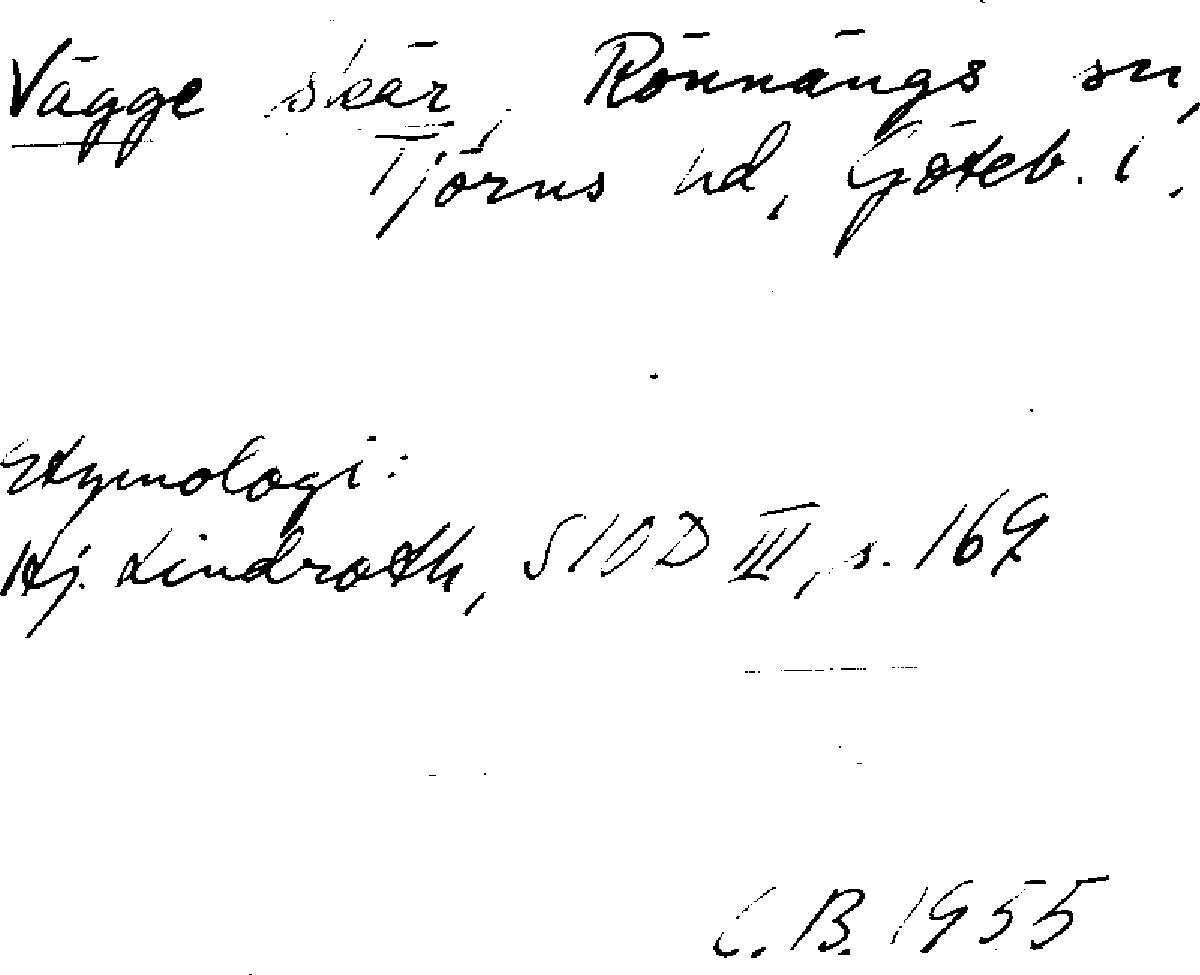 Vägge skär, Rönnängs sn,
Tjörns hd, Göteb. l.
Etymologi:
Hj. Lindroth, SIOD III, s. 169
C. B. 1955